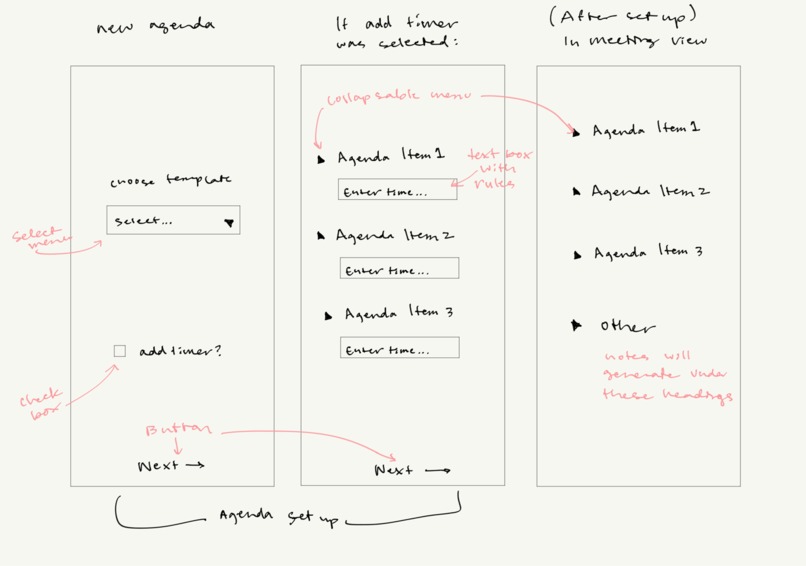 new agenda
If add timer
was selected:
(After set up)
In meeting view
collapsable menu
Agenda Item 1
text box
with
rules
Enter time...
Agenda Item 1
choose template
select...
select
menu
Agenda Item 2
Enter time...
Agenda Item 2
Agenda Item 3
Enter time...
Agenda Item 3
other
notes will
generate under
these headings
add timer?
check
box
Button
Next
Next
Agenda set up